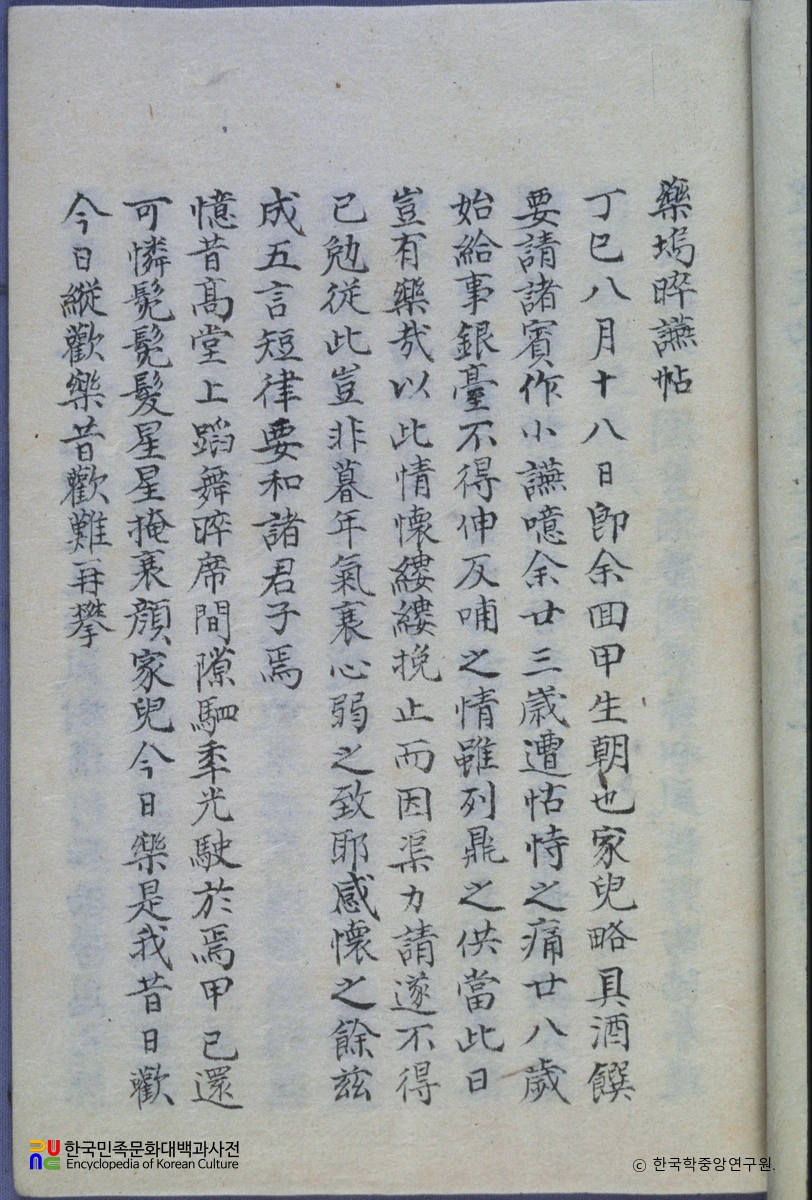 藥塢晬讌帖
丁巳八月十八日卽余回甲生朝也家兒略具酒饌
要請諸賓作小讌噫余廿三歲遭怙恃之痛廿八歲
始給事銀臺不得伸反哺之情雖列鼎之供當此日
豈有樂哉以此情懷縷縷挽止而因渠力請遂不得
已勉從此豈非暮年氣衰心弱之致耶感懷之餘玆
成五言短律要和諸君子焉
憶昔高堂上蹈舞晬席間隙駟秊光駛於焉甲已還
可憐髡髡髮星星掩衰顔家兒今日樂是我昔日歡
今日縱歡樂昔歡難再攀
한국민족문화대백과사전
Encyclopedia of Korean Culture
ⓒ 한국학중앙연구원.